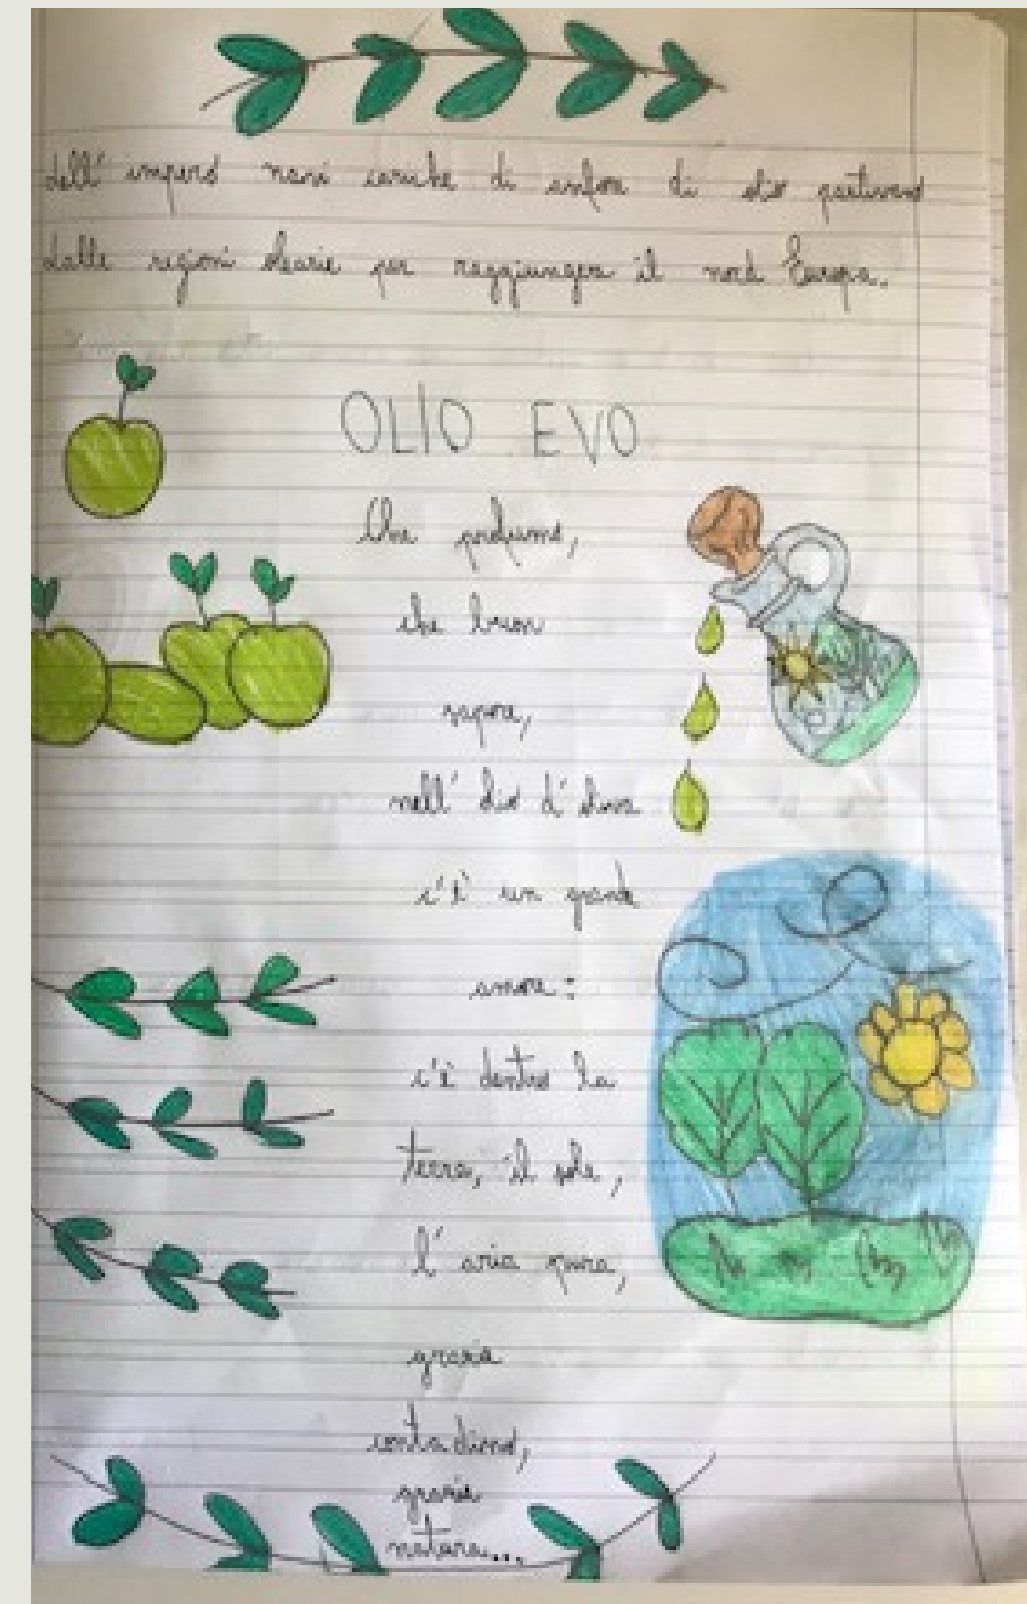 dell'impero navi cariche di anfore di olio partivano
dalle regioni olearie per raggiungere il nord Europa.
OLIO EVO
Che profumo,
che buon
sapore,
nell'olio d'oliva
c'è un grande
amore:
c'è dentro la
terra, il sole,
l'aria pura,
grazie
contadino,
grazie
natura...